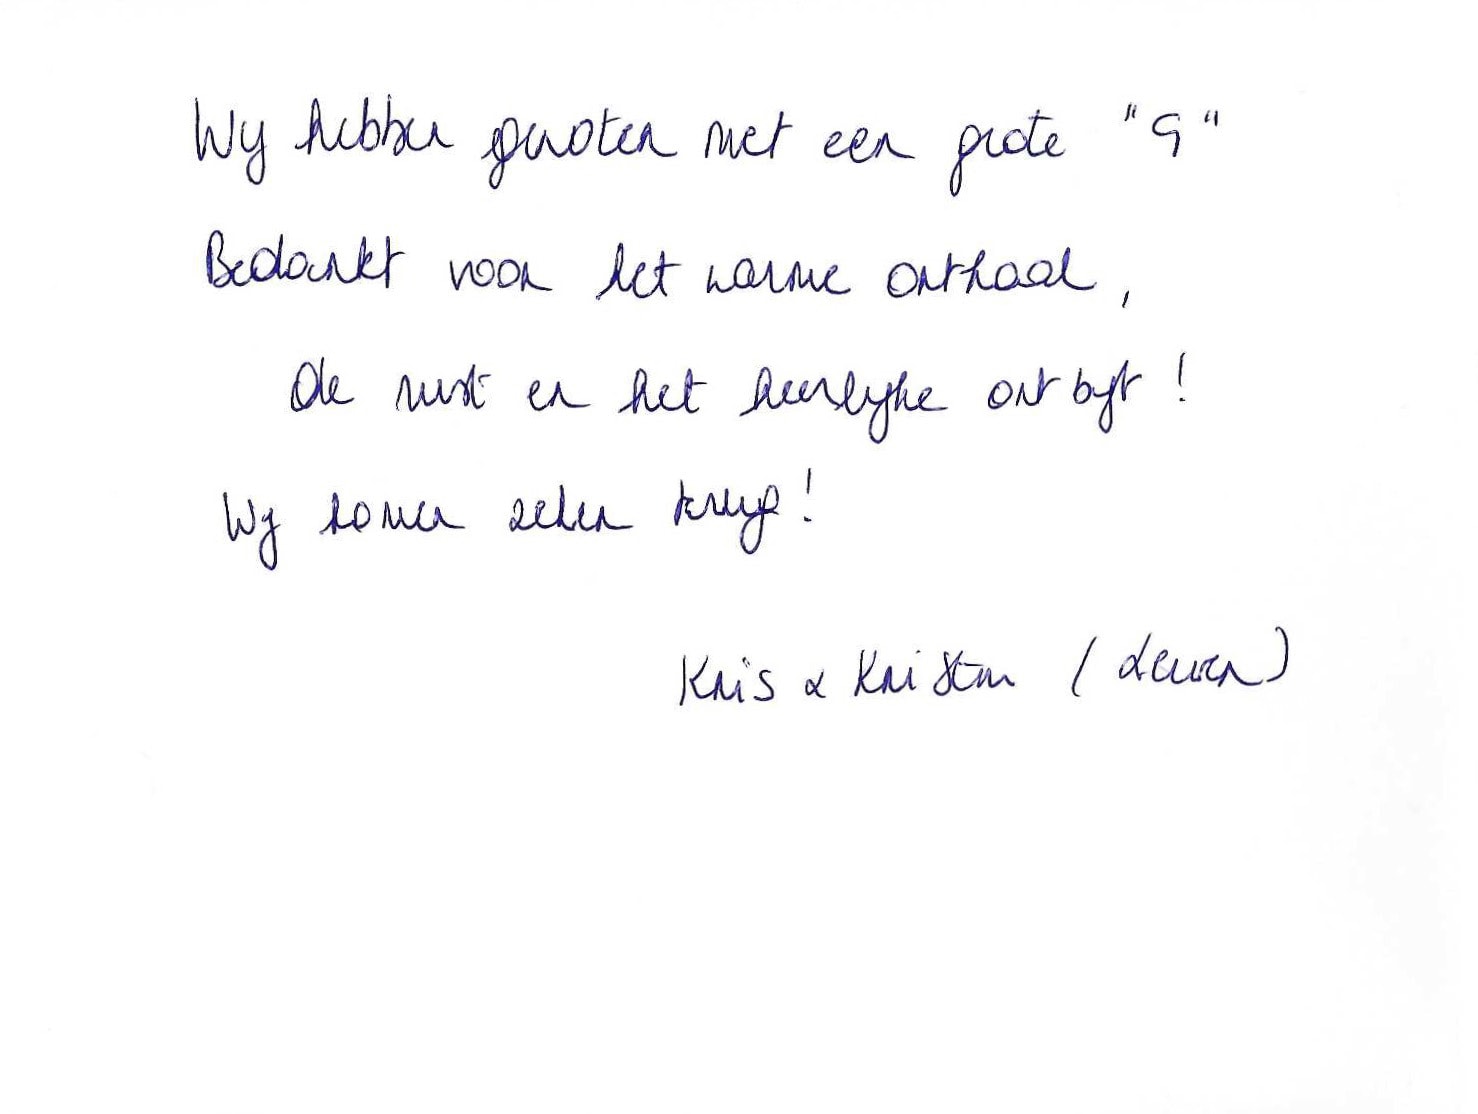 Wij hebben genoten met een grote "G"
Bedankt voor het warme onthaal,
de rust en het heerlijke ontbijt!
Wij komen zeker terug!
Kris & Kristin (Leuven)